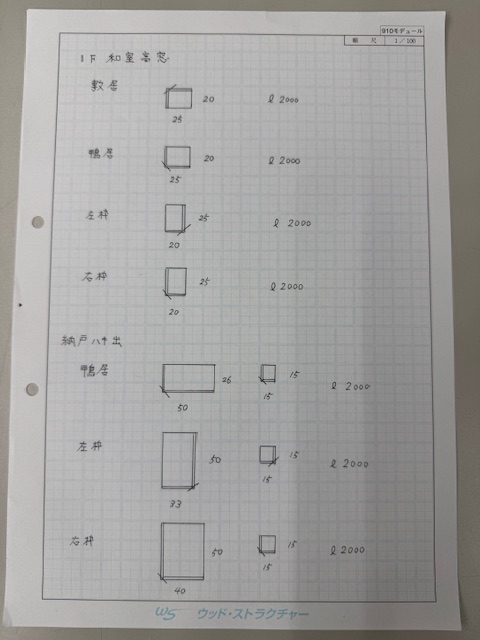 910モデュール
縮 尺 1/100
1F 和室高窓
敷居 20 l 2000
25
鴨居 20 l 2000
25
左枠 25 l 2000
20
右枠 25 l 2000
20
納戸ハキ出
鴨居 26 15 l 2000
50 15
左枠 50 15 l 2000
33 15
右枠 50 15 l 2000
40 15
WS ウッド・ストラクチャー